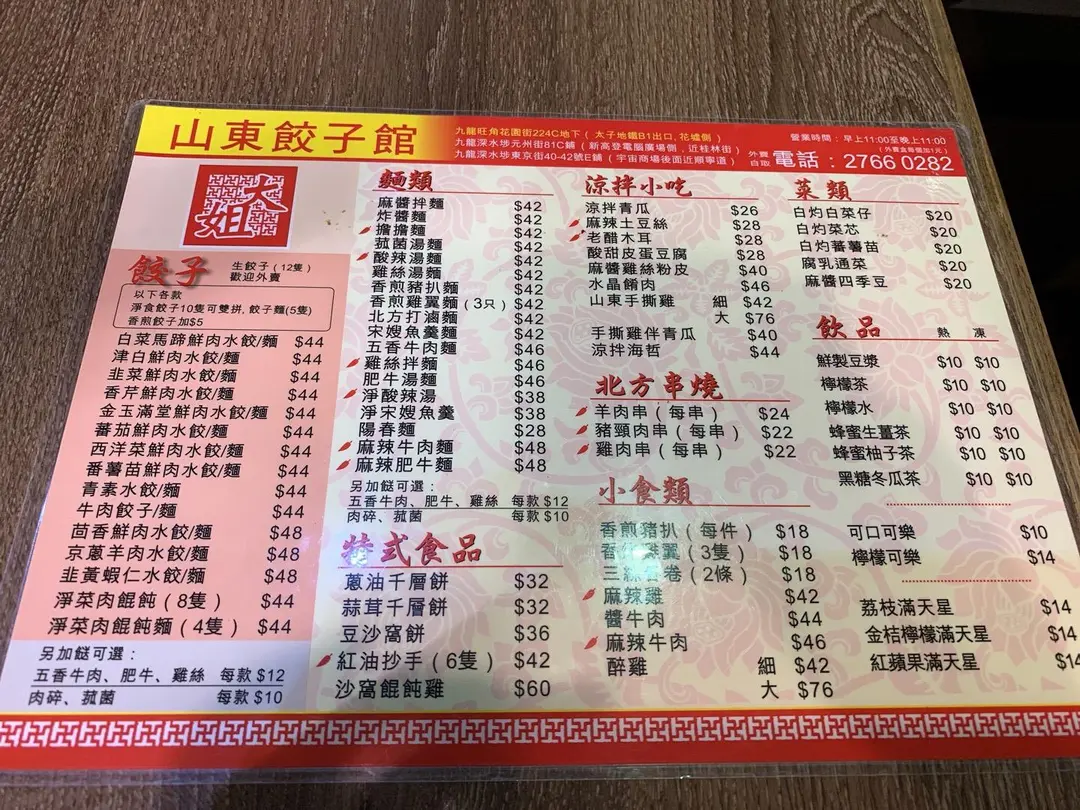 山東餃子館
九龍旺角花園街224C地下（太子地鐵B1出口,花墟側）
九龍深水埗元州街81C鋪（新高登電腦廣場側，近桂林街）
九龍深水埗東京街40-42號E舖（宇宙商場後面近順寧道）
營業時間：早上11:00至晚上11:00
（外賣盒每個加1元）
外賣自取 電話：2766 0282
大姐
餃子
生餃子（12隻）
歡迎外賣
以下各款
淨食餃子10隻可雙拼, 餃子麵(5隻)
香煎餃子加$5
白菜馬蹄鮮肉水餃/麵 $44
津白鮮肉水餃/麵 $44
韭菜鮮肉水餃/麵 $44
香芹鮮肉水餃/麵 $44
金玉滿堂鮮肉水餃/麵 $44
蕃茄鮮肉水餃/麵 $44
西洋菜鮮肉水餃/麵 $44
番薯苗鮮肉水餃/麵 $44
青素水餃/麵 $44
牛肉餃子/麵 $44
茴香鮮肉水餃/麵 $48
京蔥羊肉水餃/麵 $48
韭黃蝦仁水餃/麵 $48
淨菜肉餛飩（8隻） $44
淨菜肉餛飩麵（4隻） $44
另加餸可選：
五香牛肉、肥牛、雞絲 每款 $12
肉碎、菰菌 每款 $10
麵類
麻醬拌麵 $42
炸醬麵 $42
擔擔麵 $42
菰菌湯麵 $42
酸辣湯麵 $42
雞絲湯麵 $42
香煎豬扒麵 $42
香煎雞翼麵（3只） $42
北方打滷麵 $42
宋嫂魚羹麵 $42
五香牛肉麵 $46
雞絲拌麵 $46
肥牛湯麵 $46
淨酸辣湯 $38
淨宋嫂魚羹 $38
陽春麵 $28
麻辣牛肉麵 $48
麻辣肥牛麵 $48
另加餸可選：
五香牛肉、肥牛、雞絲 每款 $12
肉碎、菰菌 每款 $10
特式食品
蔥油千層餅 $32
蒜茸千層餅 $32
豆沙窩餅 $36
紅油抄手（6隻） $42
沙窩餛飩雞 $60
涼拌小吃
涼拌青瓜 $26
麻辣土豆絲 $28
老醋木耳 $28
酸甜皮蛋豆腐 $28
麻醬雞絲粉皮 $40
水晶餚肉 $46
山東手撕雞 細 $42
大 $76
手撕雞伴青瓜 $40
涼拌海哲 $44
北方串燒
羊肉串（每串） $24
豬頸肉串（每串） $22
雞肉串（每串） $22
小食類
香煎豬扒（每件） $18
香煎雞翼（3隻） $18
三絲春卷（2條） $18
麻辣雞 $42
醬牛肉 $44
麻辣牛肉 $46
醉雞 細 $42
大 $76
菜類
白灼白菜仔 $20
白灼菜芯 $20
白灼蕃薯苗 $20
腐乳通菜 $20
麻醬四季豆 $20
飲品 熱 凍
鮮製豆漿 $10 $10
檸檬茶 $10 $10
檸檬水 $10 $10
蜂蜜生薑茶 $10 $10
蜂蜜柚子茶 $10 $10
黑糖冬瓜茶 $10 $10
可口可樂 $10
檸檬可樂 $14
荔枝滿天星 $14
金桔檸檬滿天星 $14
紅蘋果滿天星 $14